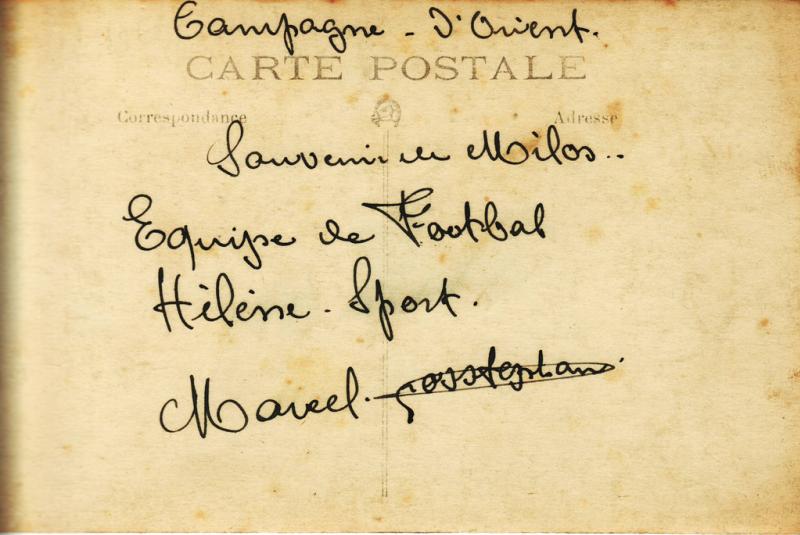 Campagne - D'Orient.
CARTE POSTALE
Correspondance Adresse
Souvenir de Milos..
Equipe de Footbal
Hélène - Sport.
Marcel.